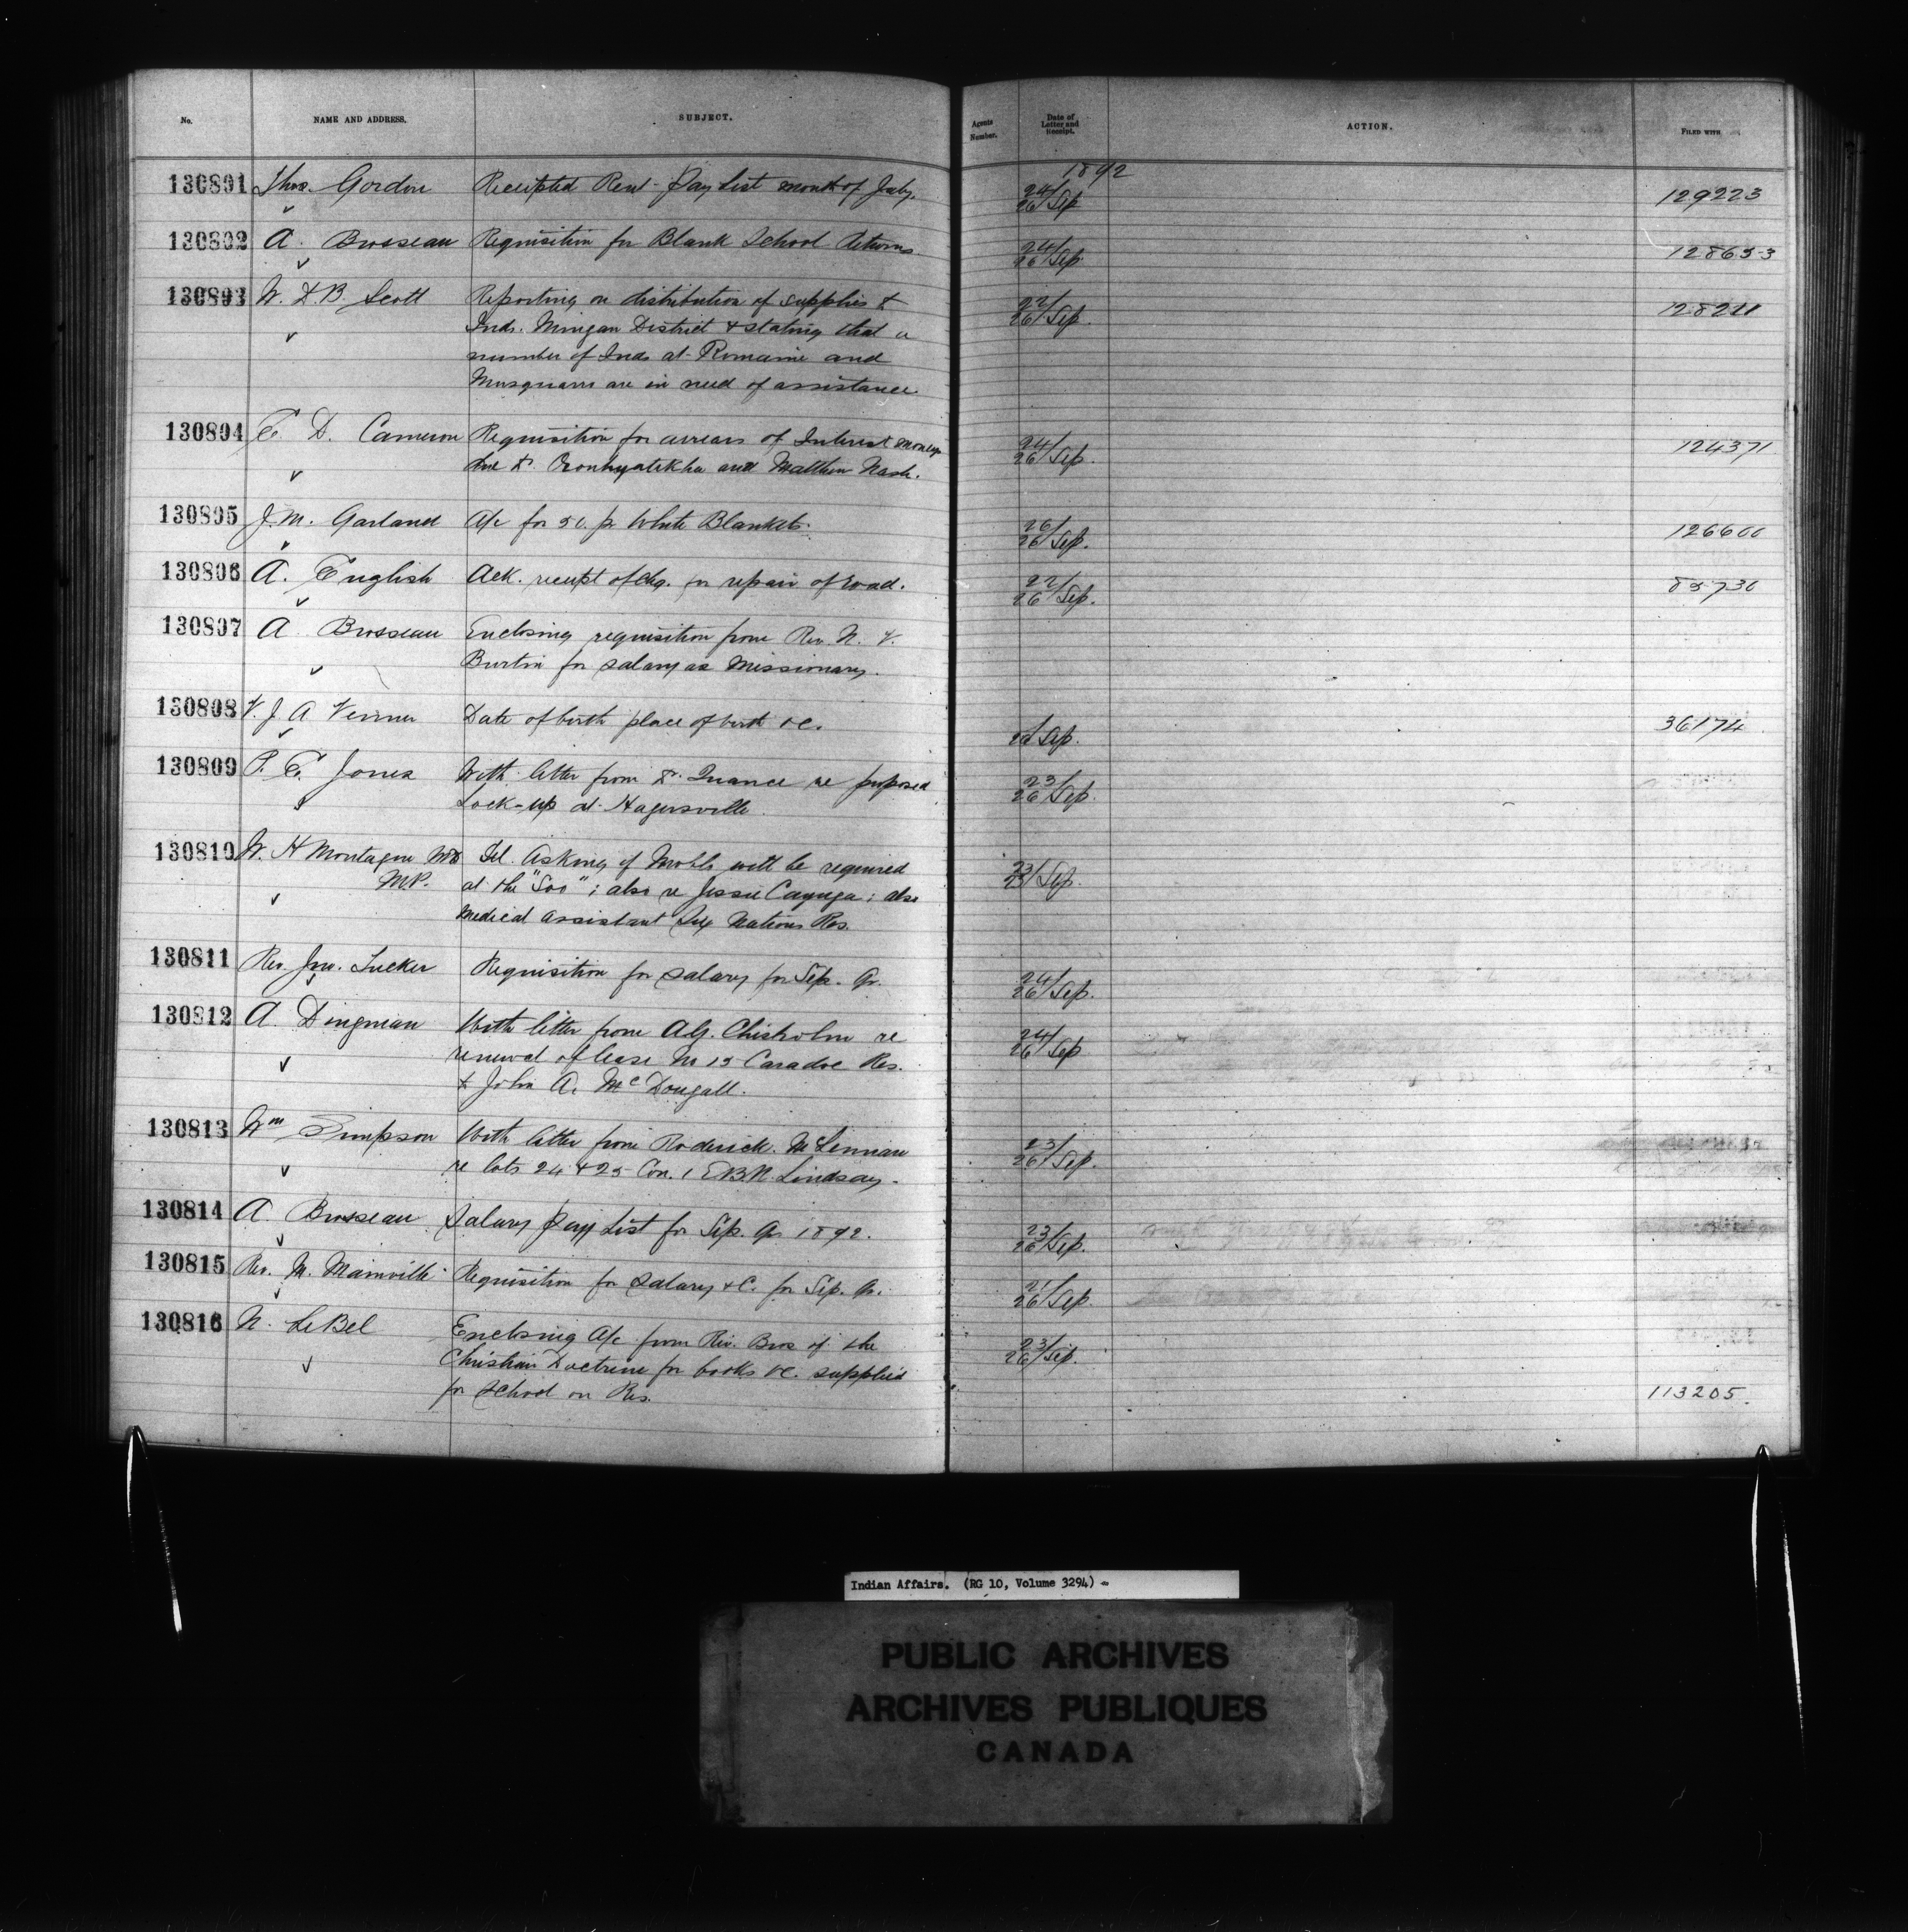 No. NAME AND ADDRESS. SUBJECT. Agents Number. Date of Letter and Receipt. ACTION. FILED WITH
1892
130801 Thos. Gordon Receipted Rent-Pay List month of July. 24/26 Sep 129223
130802 A. Brosseau Requisition for Blank School Returns 24/26 Sep. 128653
130803 W. D. B. Scott Reporting on distribution of supplies to 22/26 Sep. 128211
Inds. Mingan District & stating that a
number of Inds at Romaine and
Musquaro are in need of assistance
130804 E. D. Cameron Requisition for arrears of Interest money 24/26 Sep. 124371
due Dr. Oronhyatekha and Matthew Nash.
130805 J. M. Garland A/c for 50 pr White Blankets. 26/26 Sep. 126600
130806 A. English Ack. receipt of chq. for repair of road. 22/26 Sep. 85730
130807 A Brosseau Enclosing requisition from Rev. N. V.
Burtin for salary as Missionary.
130808 V. J. A Venner Date of birth place of birth &c. Sep. 36174
130809 P. E. Jones With letter from Dr. Quance re proposed 23/26 Sep.
Lock-up at Hagersville.
130810 W. H Montague MD Tel. Asking if Mohls will be required 23/23 Sep.
M.P. at the "Soo"; also re Jessie Cayuga; also
Medical Assistant Six Nations Res.
130811 Rev. Jno. Tucker Requisition for salary for Sep. Qr. 24/26 Sep.
130812 A. Dingman With letter from A.G. Chisholm re 24/26 Sep
renewal of lease No 15 Caradoc Res.
to John A. McDougall.
130813 Wm Simpson With letter from Roderick McLennan 23/26 Sep.
re lots 24 & 25 Con. 1 E.B.R. Lindsay.
130814 A. Brosseau Salary Pay List for Sep. Qr. 1892. 23/26 Sep.
130815 Rev. M. Mainville Requisition for salary &c. for Sep. Qr. 21/26 Sep.
130816 N. LeBel Enclosing A/c from Rev. Bros of the 23/26 Sep.
Christian Doctrine for books &c. supplied
for School on Res. 113205.
Indian Affairs. (RG 10, Volume 3294)
PUBLIC ARCHIVES
ARCHIVES PUBLIQUES
CANADA